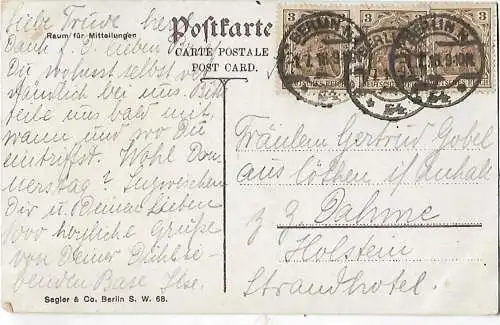 Liebe Trude
Postkarte
Raum für Mitteilungen
CARTE POSTALE
POST CARD.
3 3 3
BERLIN N.
Du wohnst selbst
nämlich bei uns. Bitte
teile uns bald mit
wann und wo Du
eintriffst. Wohl Don-
nerstag? Inzwischen
Dir u. Deinen Lieben
1000 herzliche Grüße
von Deiner Dichlie-
benden Base Ilse.
Fräulein Gertrud Gobel
aus Cöthen i/ Anhalt
z. Z. Dahme
Holstein
Strandhotel.
Segler & Co. Berlin S. W. 68.